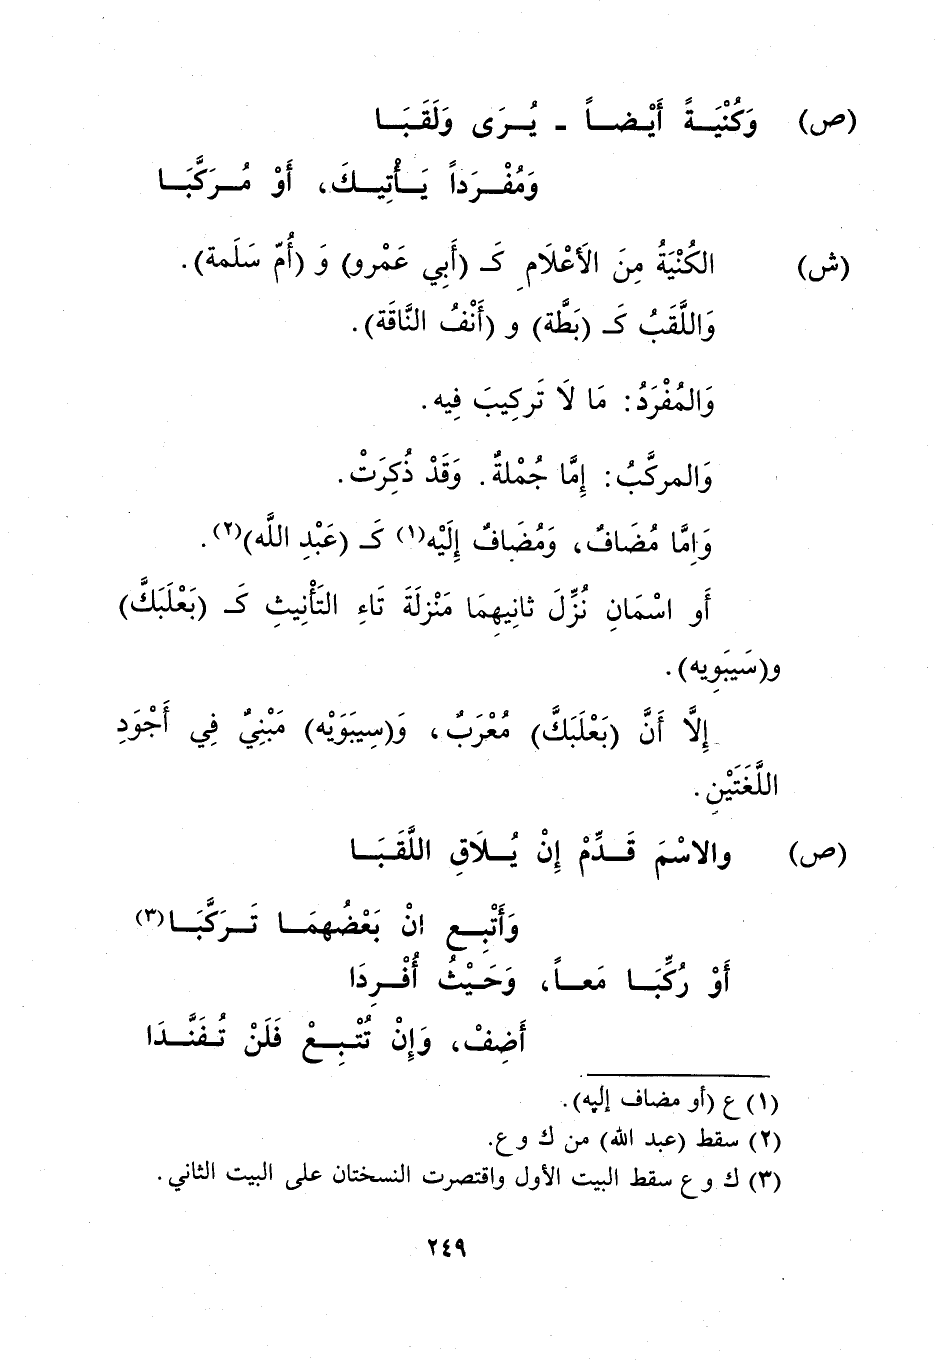 (ص) وَكُنْيَةً أَيْضاً - يُرَى وَلَقَبَا
وَمُفْرَداً يَأْتِيكَ، أَوْ مُرَكَّبَا
(ش) الكُنْيَةُ مِنَ الأَعْلَامِ كَـ (أَبِي عَمْرو) وَ (أُمّ سَلَمة).
وَاللَّقَبُ كَـ (بَطَّة) و (أَنْفُ النَّاقَة).
وَالمُفْرَدُ: مَا لَا تَركِيبَ فِيه.
وَالمركَّبُ: إِمَّا جُمْلةٌ. وَقَدْ ذُكِرَتْ.
وَإِمَّا مُضَافٌ، وَمُضَافٌ إِلَيْه(١) كَـ (عَبْدِ اللَّه)(٢).
أَو اسْمَانِ نُزِّلَ ثانِيهِمَا مَنْزلَةَ تَاءِ التَأْنِيثِ كَـ (بَعْلَبَكَّ)
و(سَيبَوِيه).
إِلَّا أَنَّ (بَعْلَبَكَّ) مُعْرَبٌ، وَ(سِيبَوَيْه) مَبْنِيٌ فِي أَجْوَدِ
اللَّغَتَيْنِ.
(ص) والاسْمَ قَدِّمْ إِنْ يُلَاقِ اللَّقَبَا
وَأَتْبِع انْ بَعْضُهمَا تَرَكَّبَا(٣)
أَوْ رُكِّبَا مَعاً، وَحَيْثُ أُفْرِدَا
أَضِفْ، وَإِنْ تُتْبِعْ فَلَنْ تُفَنَّدَا
(١) ع (أو مضاف إليه).
(٢) سقط (عبد الله) من ك و ع.
(٣) ك و ع سقط البيت الأول واقتصرت النسختان على البيت الثاني.
٢٤٩